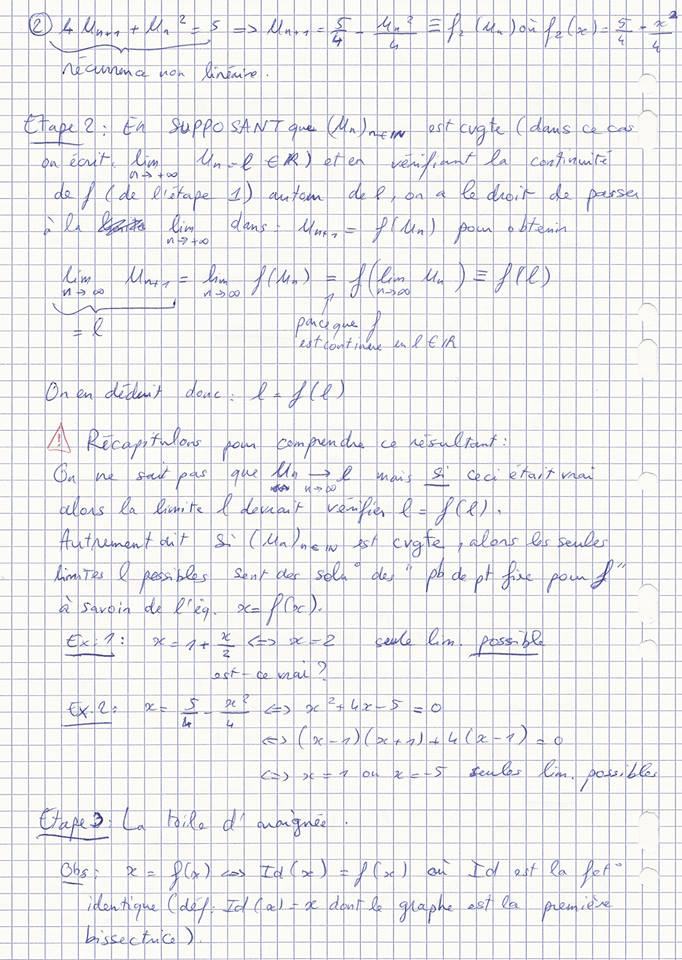 ② 4 Un+1 + Un² = 5 => Un+1 = 5/4 - Un²/4 ≡ f₂(Un) où f₂(x) = 5/4 - x²/4
récurrence non linéaire.
Etape 2 : En SUPPOSANT que (Un)n∈IN est cvgte (dans ce cas
on écrit. lim n→+∞ Un = l ∈ IR) et en vérifiant la continuité
de f (de l'étape 1) autour de l, on a le droit de passer
à la lim n→+∞ dans : Un+1 = f(Un) pour obtenir
lim n→∞ Un+1 = lim n→∞ f(Un) = f(lim n→∞ Un) ≡ f(l)
= l parce que f
est continue en l ∈ IR
On en déduit donc : l = f(l)
⚠ Récapitulons pour comprendre ce résultant :
On ne sait pas que Un → l n→∞ mais si ceci était vrai
alors la limite l devrait vérifier l = f(l).
Autrement dit si (Un)n∈IN est cvgte, alors les seules
limites l possibles sont des solu° des "pb de pt fixe pour f"
à savoir de l'éq. x = f(x).
Ex: 1 : x = 1 + x/2 <=> x = 2 seule lim. possible
est-ce vrai ?
Ex. 2 : x = 5/4 - x²/4 <=> x² + 4x - 5 = 0
<=> (x-1)(x+1) + 4(x-1) = 0
<=> x = 1 ou x = -5 seules lim. possibles
Etape 3 : La toile d'araignée.
Obs : x = f(x) <=> Id(x) = f(x) où Id est la fct°
identique (déf: Id(x) = x dont le graphe est la première
bissectrice).